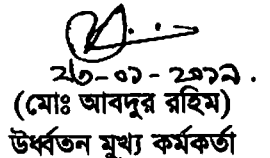 ২৩-০১-২০১৯.
(মোঃ আবদুর রহিম)
উর্ধ্বতন মুখ্য কর্মকর্তা